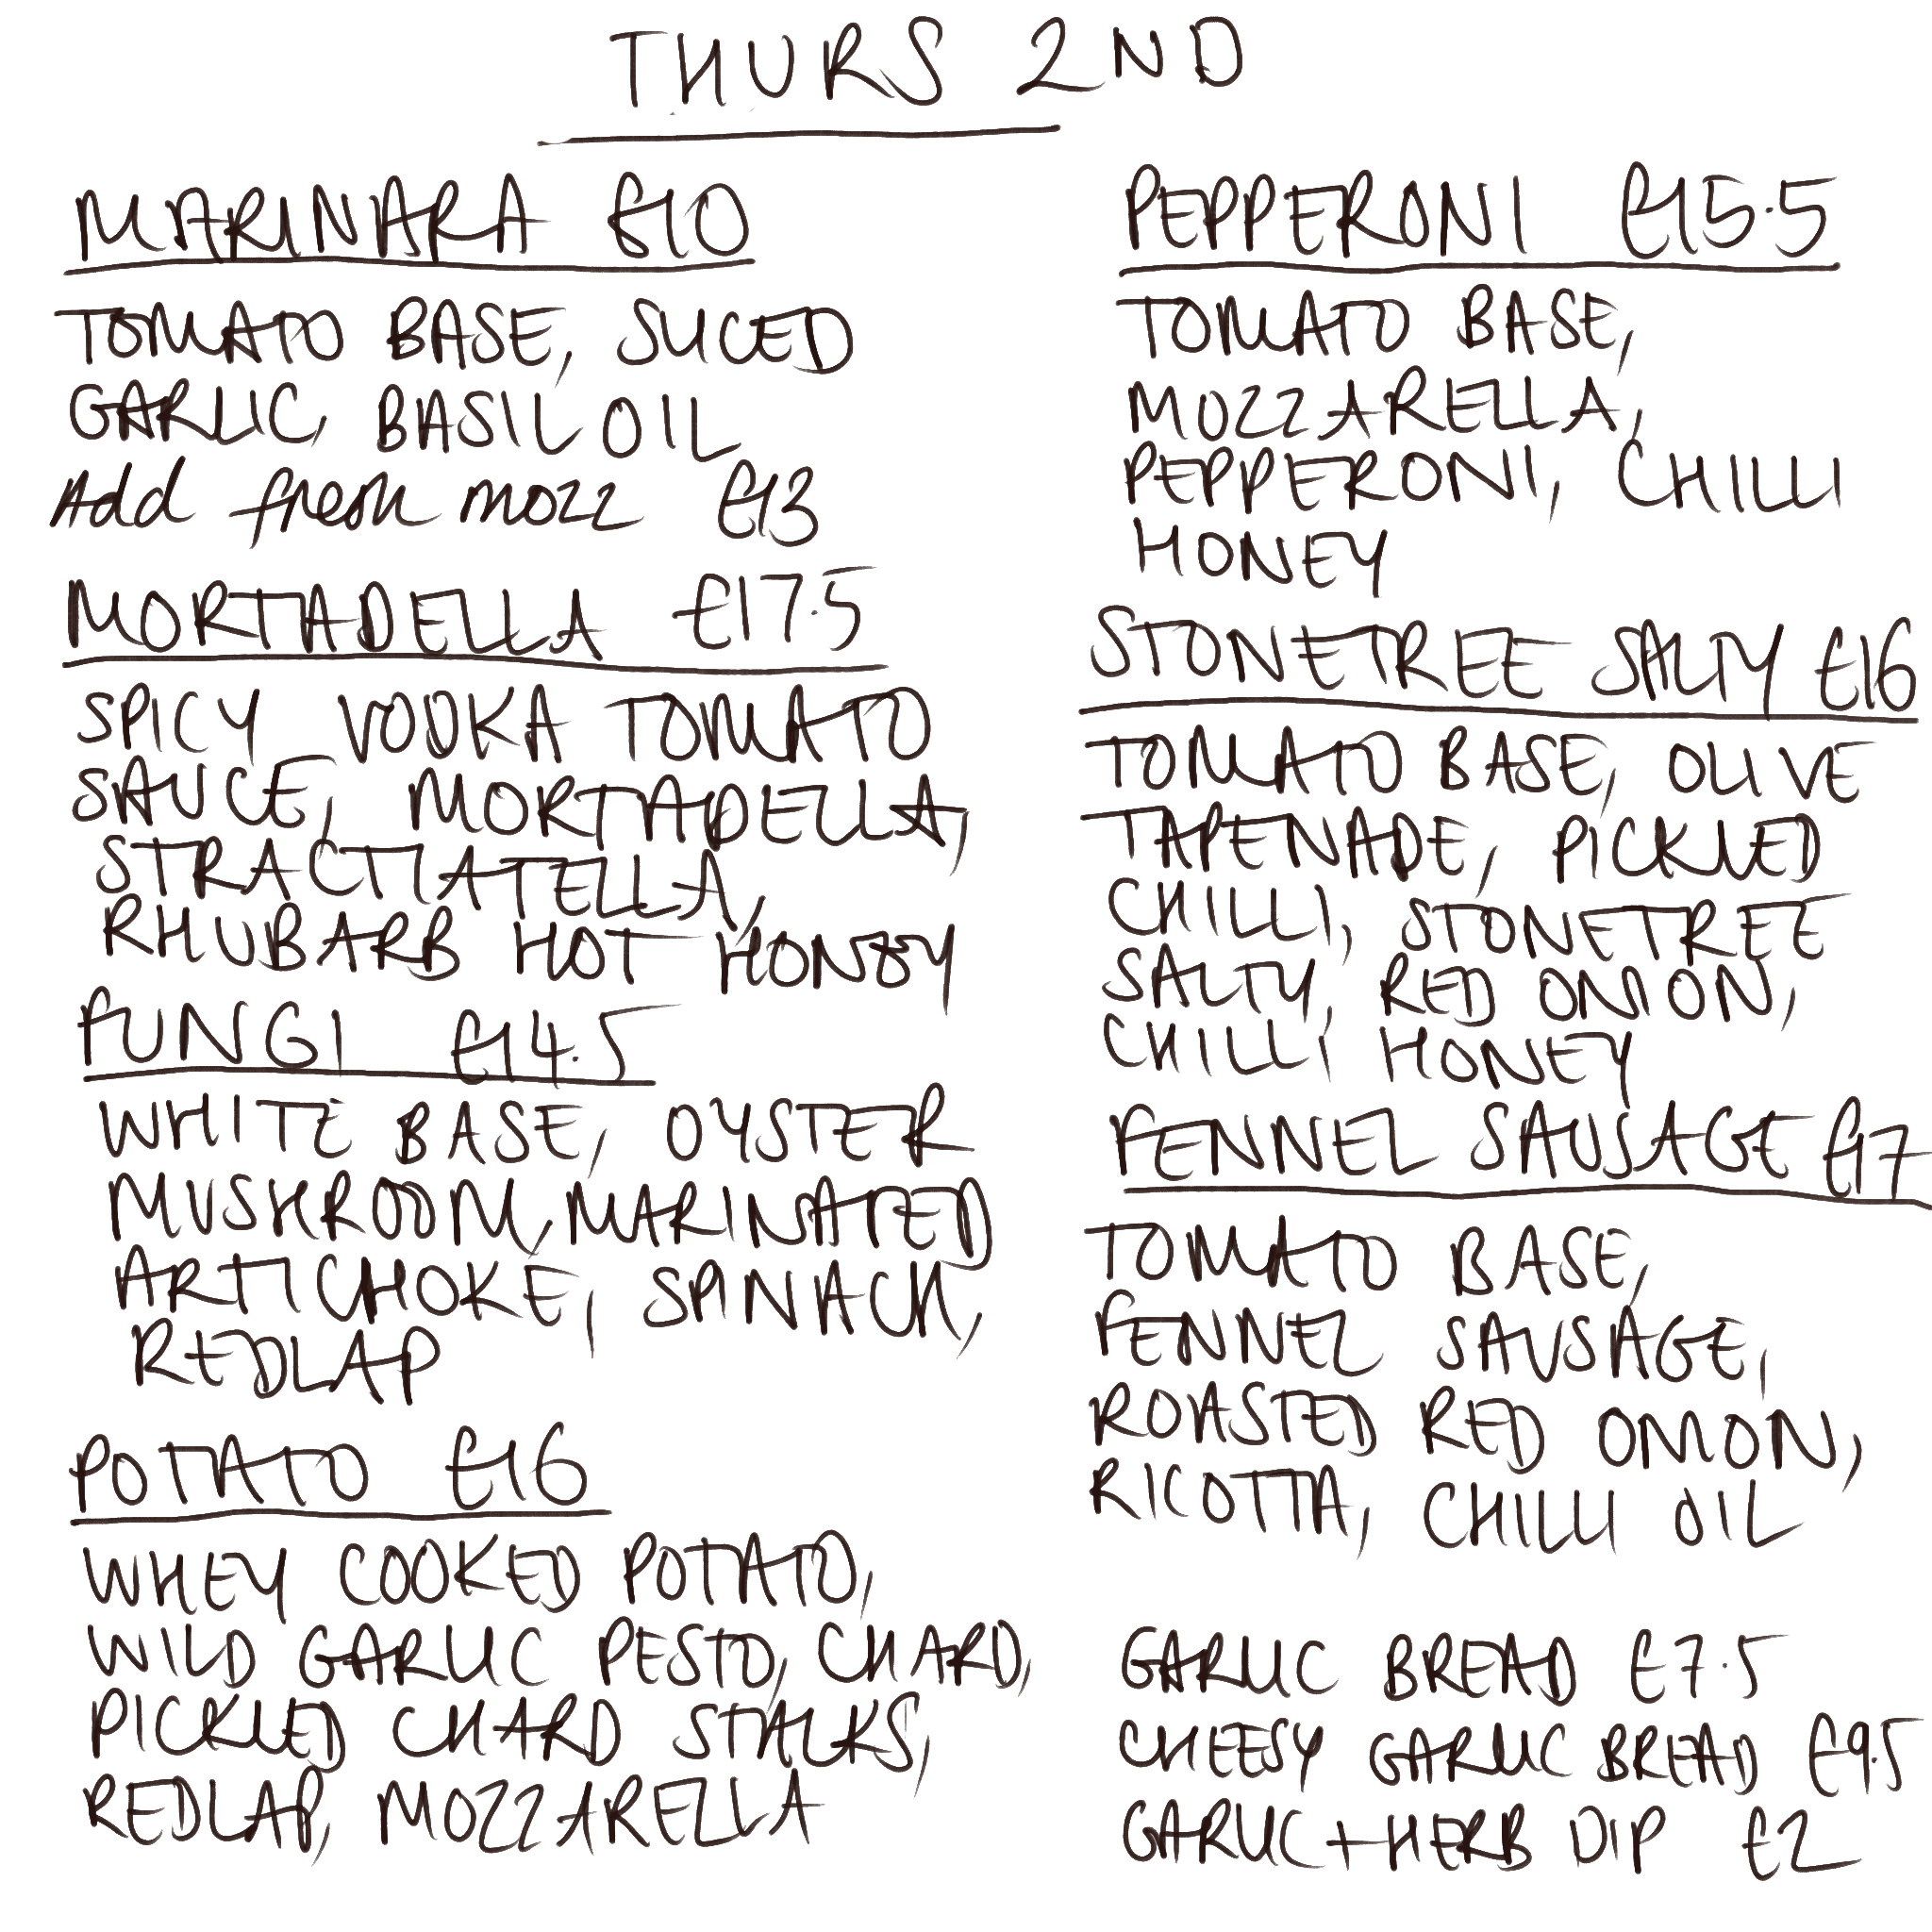 THURS 2ND
MARINARA £10
TOMATO BASE, SLICED
GARLIC, BASIL OIL
Add fresh mozz £13
MORTADELLA £17.5
SPICY VODKA TOMATO
SAUCE, MORTADELLA,
STRACTIATELLA,
RHUBARB HOT HONEY
FUNGI £14.5
WHITE BASE, OYSTER
MUSHROOM, MARINATED
ARTICHOKE, SPINACH,
REDLAP
POTATO £16
WHEY COOKED POTATO,
WILD GARLIC PESTO, CHARD,
PICKLED CHARD STALKS,
REDLAP, MOZZARELLA
PEPPERONI £15.5
TOMATO BASE,
MOZZARELLA,
PEPPERONI, CHILLI
HONEY
STONETREE SALTY £16
TOMATO BASE, OLIVE
TAPENADE, PICKLED
CHILLI, STONETREE
SALTY, RED ONION,
CHILLI HONEY
FENNEL SAUSAGE £17
TOMATO BASE,
FENNEL SAUSAGE,
ROASTED RED ONION,
RICOTTA, CHILLI OIL
GARLIC BREAD £7.5
CHEESY GARLIC BREAD £9.5
GARLIC + HERB DIP £2